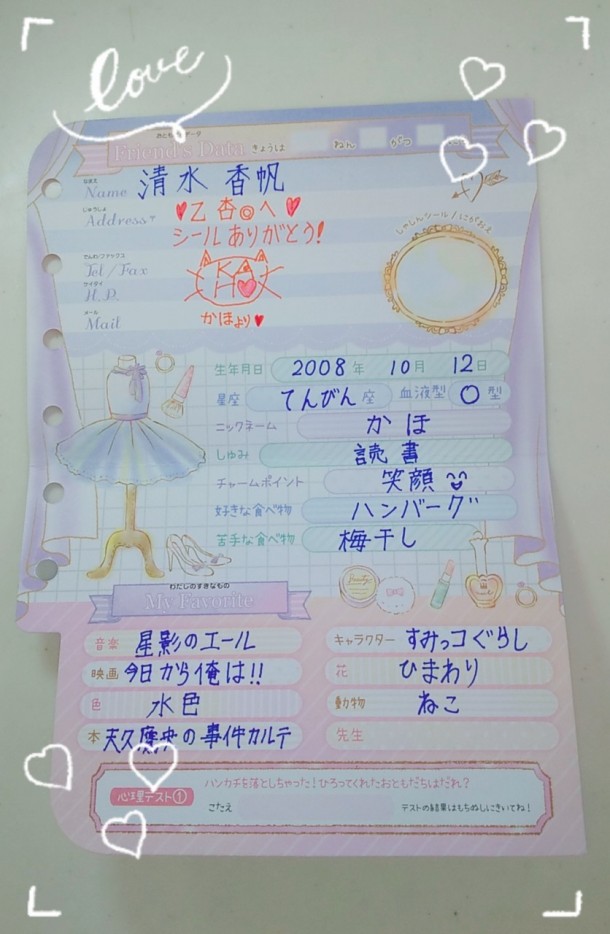 love
おともだちデータ
Friend's Data きょうは ねん がつ
なまえ
Name 清水 香帆
じゅうしょ
Address 〒
♥乙杏◎へ♥
シールありがとう!
でんわ/ファックス
Tel/Fax
ケイタイ
H.P.
メール
Mail
KA
HO
かほより♥
しゃしんシール/にがおえ
生年月日 2008年 10月 12日
星座 てんびん座 血液型 O型
ニックネーム かほ
しゅみ 読書
チャームポイント 笑顔
好きな食べ物 ハンバーグ
苦手な食べ物 梅干し
わたしのすきなもの
My Favorite
音楽 星影のエール
キャラクター すみっコぐらし
映画 今日から俺は!!
花 ひまわり
色 水色
動物 ねこ
本 天久鷹央の事件カルテ
先生
心理テスト①
ハンカチを落としちゃった!ひろってくれたおともだちはだれ?
こたえ
テストの結果はもちぬしにきいてね!